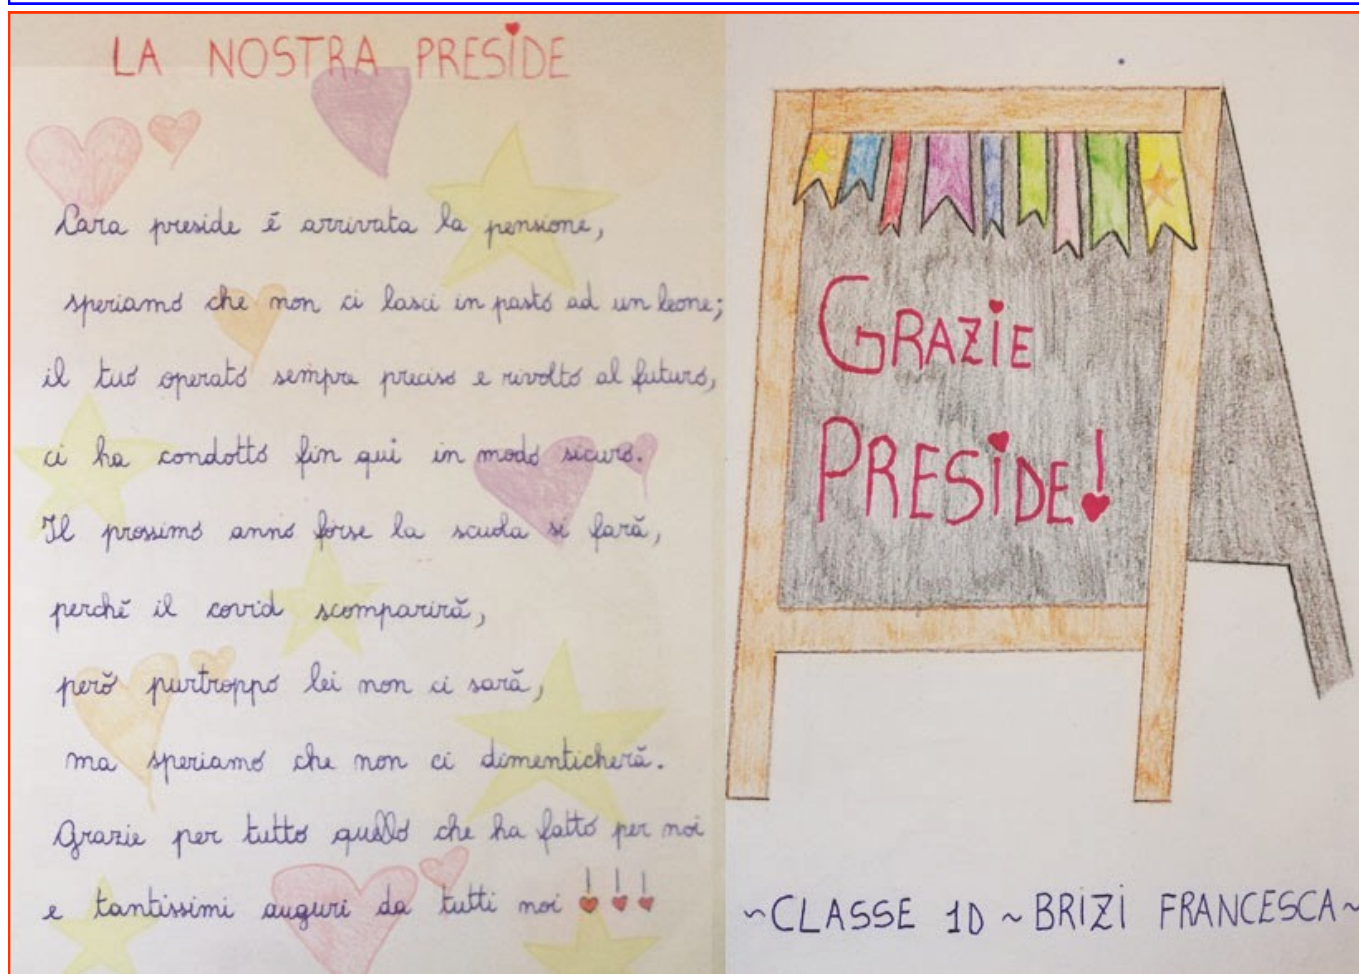 LA NOSTRA PRESIDE
Cara preside é arrivata la pensione,
speriamo che non ci lasci in pasto ad un leone;
il tuo operato sempre preciso e rivolto al futuro,
ci ha condotto fin qui in modo sicuro.
Il prossimo anno forse la scuola si fará,
perché il covid scomparirá,
peró purtroppo lei non ci sará,
ma speriamo che non ci dimenticherá.
Grazie per tutto quello che ha fatto per noi
e tantissimi auguri da tutti noi !!!
GRAZIE
PRESIDE!
~CLASSE 1D ~ BRIZI FRANCESCA~